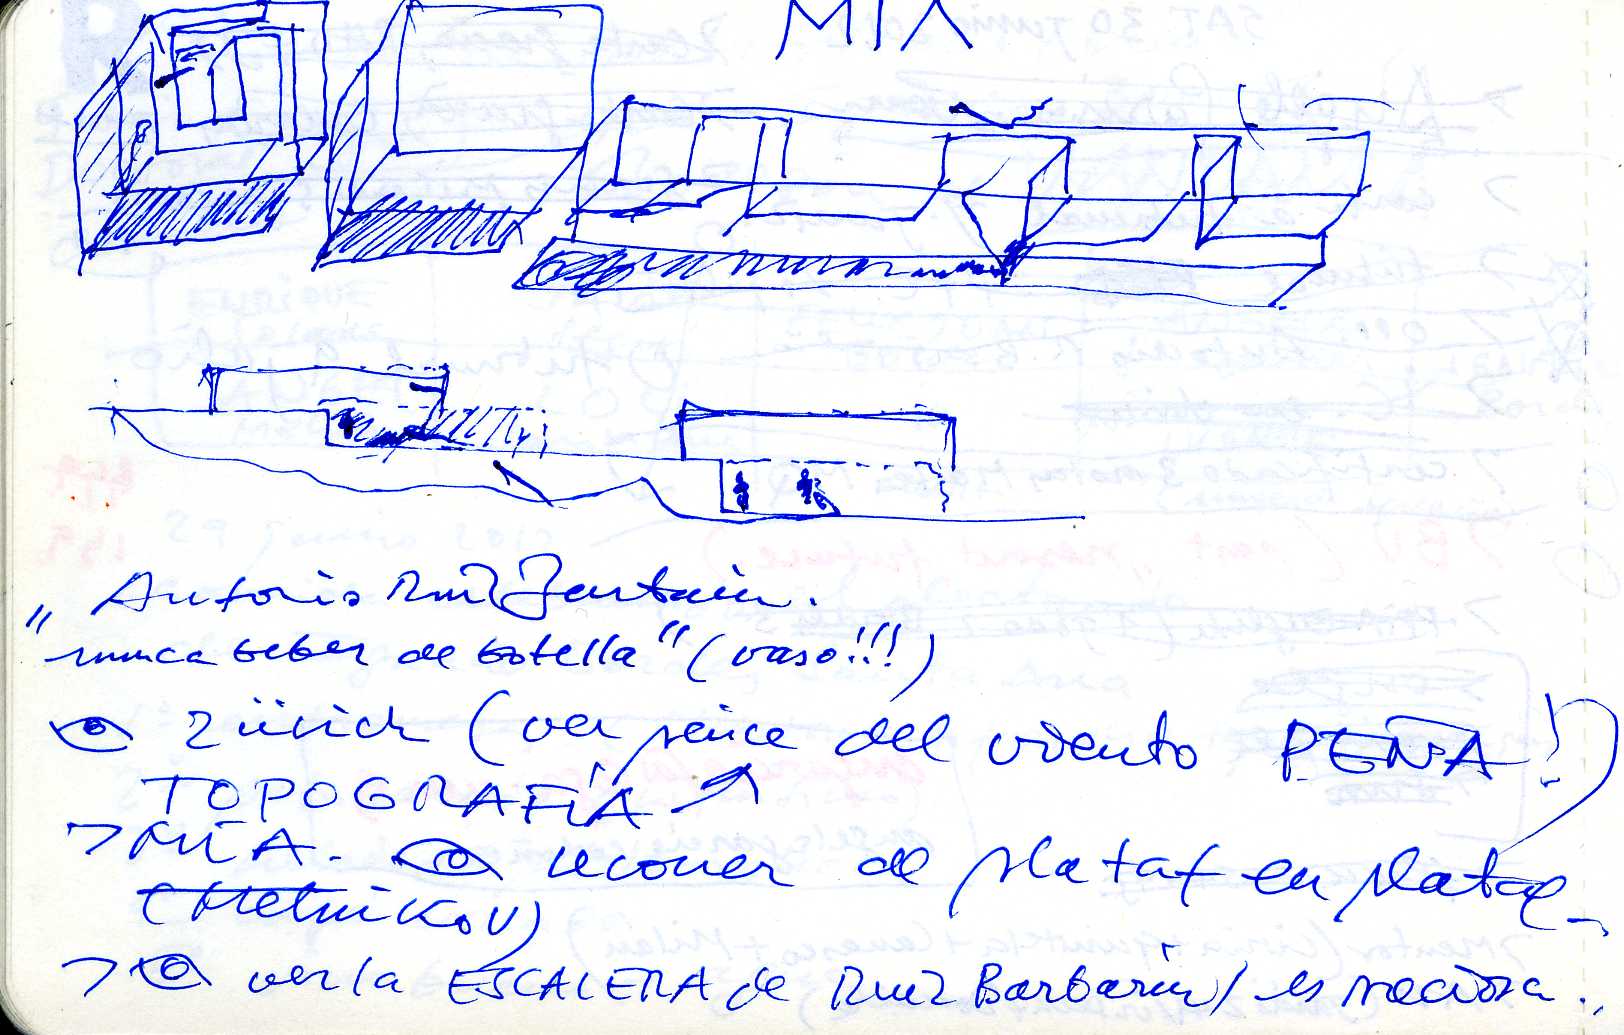 MIA
Antonio Ruiz Barbarin.
"nunca beber de botella" (vaso!!!)
Zürich (ver peine del viento PEÑA!)
TOPOGRAFÍA
> MIA. recorrer de plataf en plataf
(Melnikov)
> ver la ESCALERA de Ruiz Barbarin/ es preciosa.